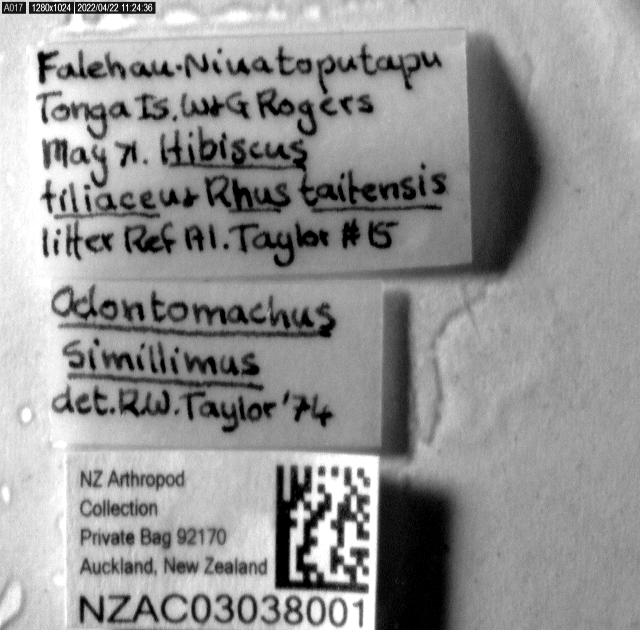 A017 1280x1024 2022/04/22 11:24:36
Falehau. Niuatoputapu
Tonga Is. W+G Rogers
May 71. Hibiscus
tiliaceus Rhus taitensis
litter Ref Al. Taylor #15
Odontomachus
simillimus
det. R.W. Taylor '74
NZ Arthropod
Collection
Private Bag 92170
Auckland, New Zealand
NZAC03038001